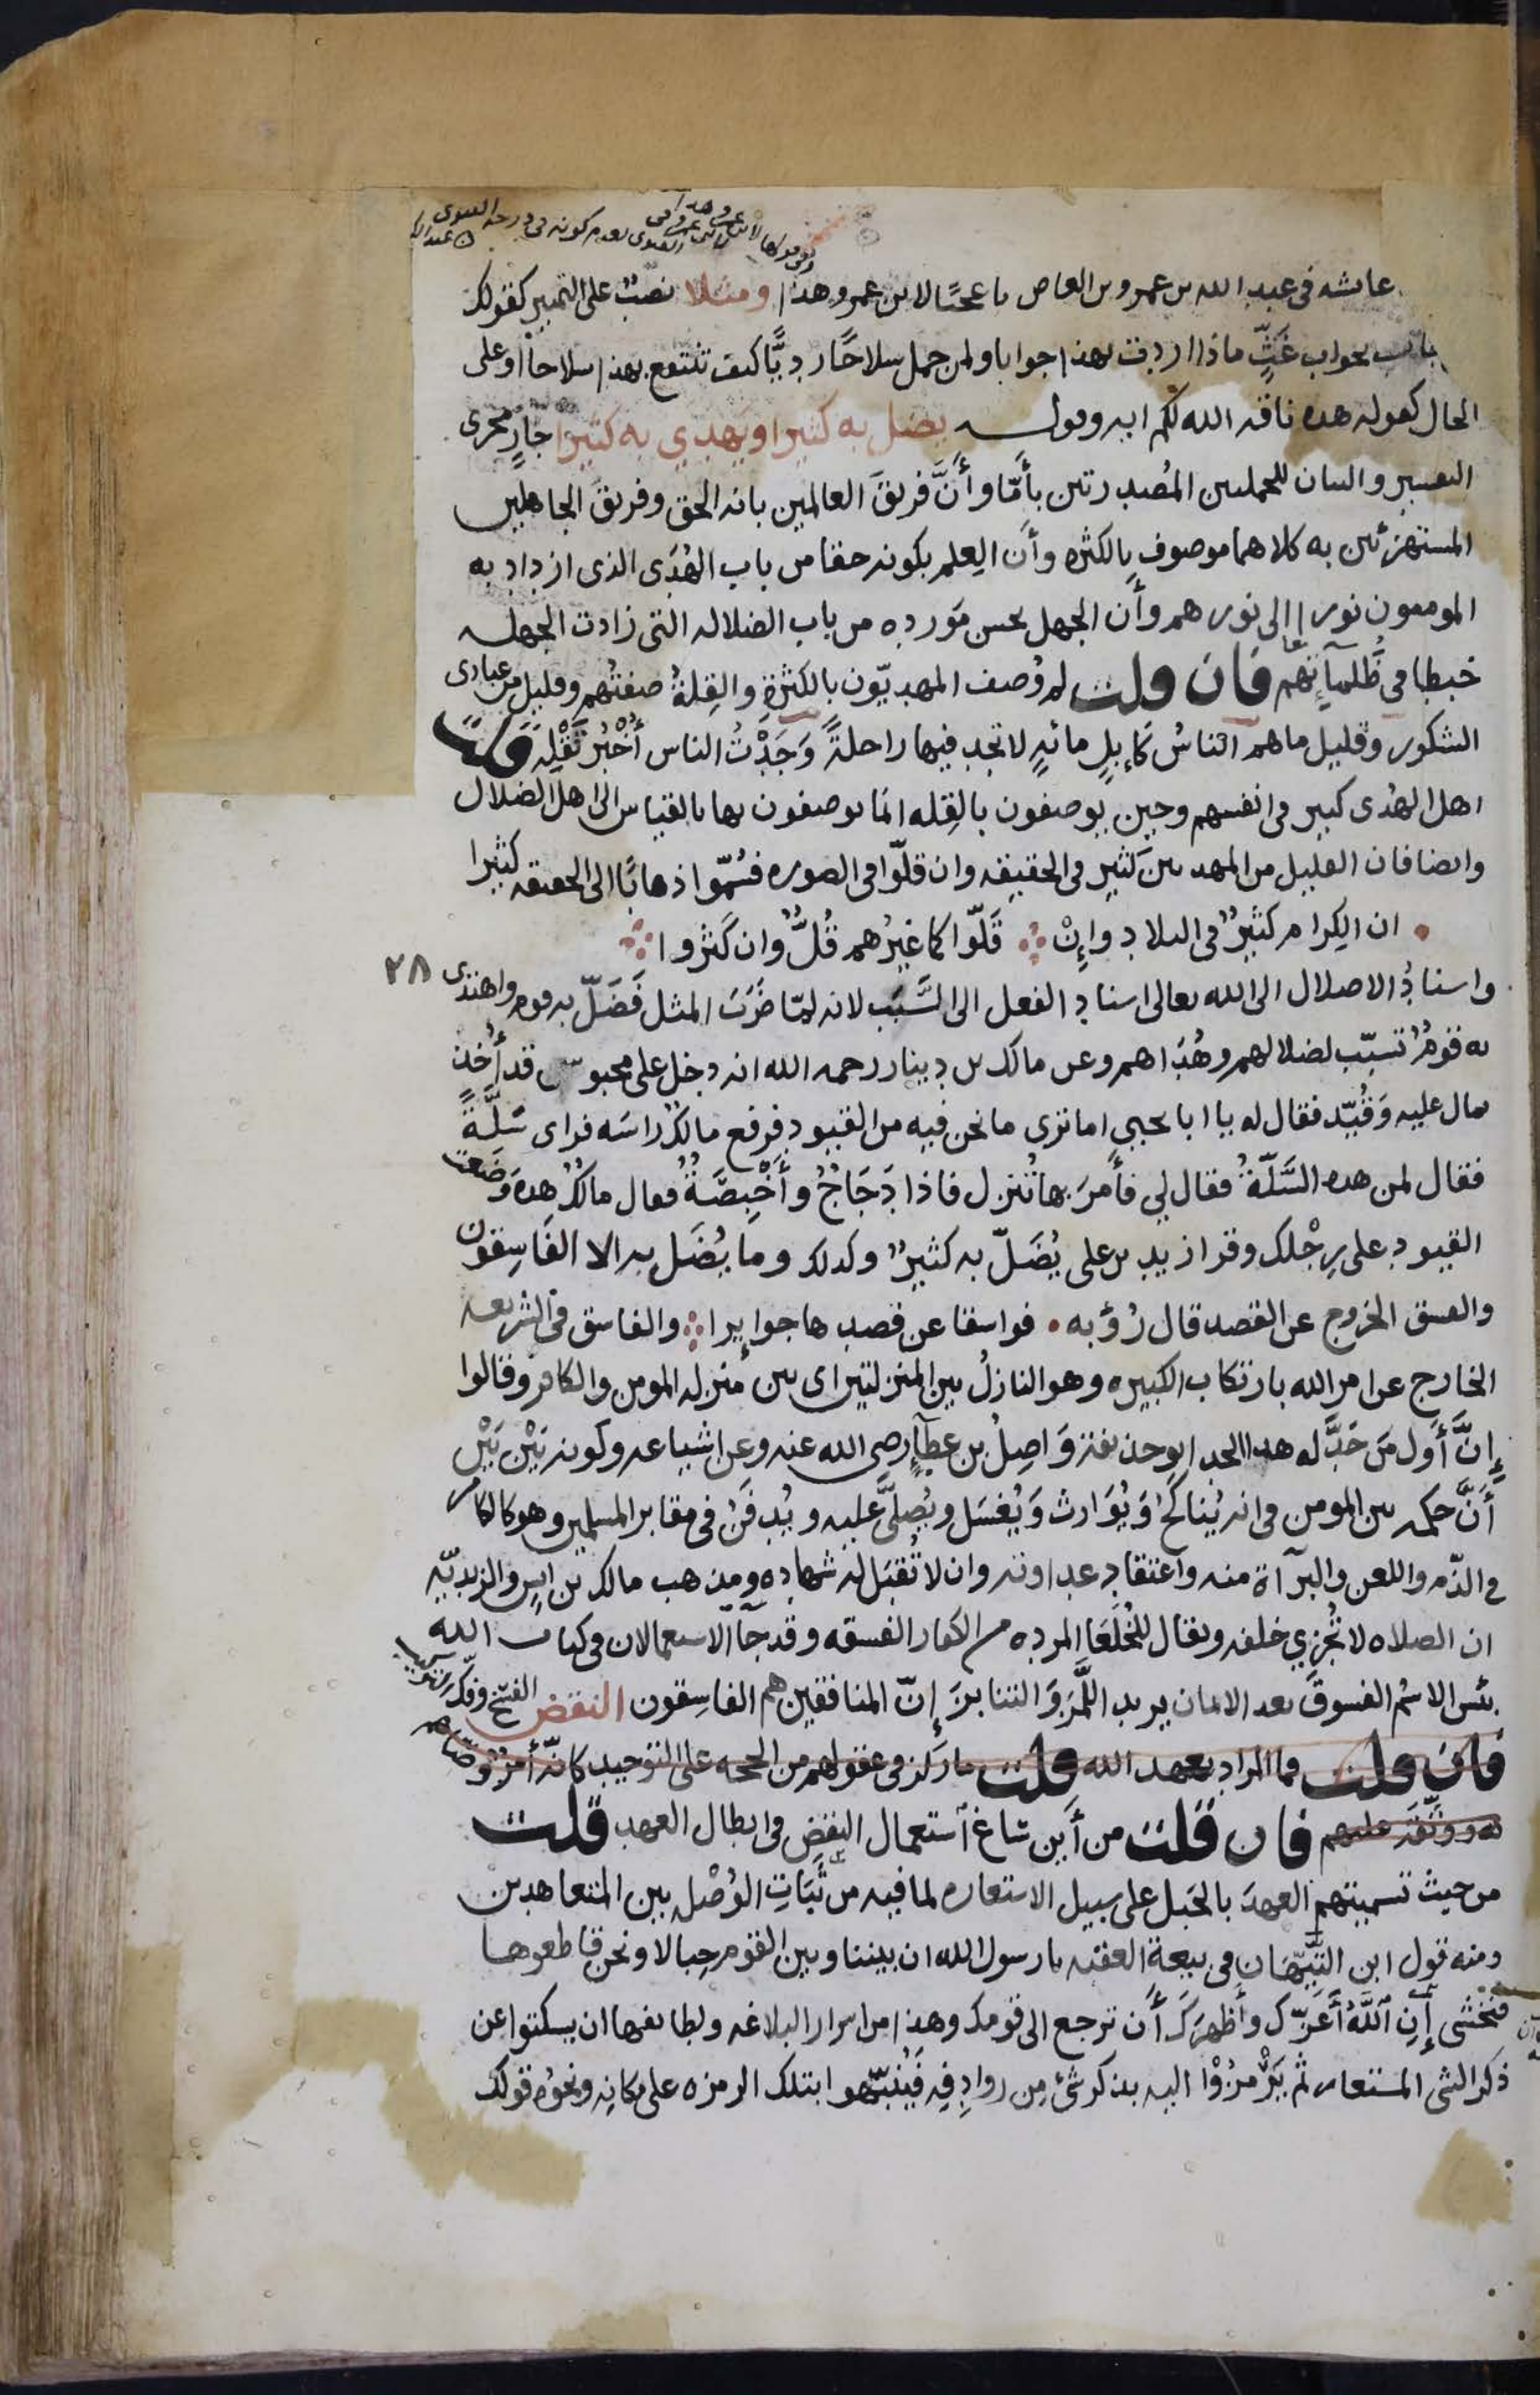 عائشه في عبد الله بن عمرو بن العاص يا عجبًا لابن عمرو هذا ومثلا نصبٌ على التمييز كقولك
بجواب غثٍّ ماذا اردت بهذا جوابا ولمن حمل سلاحًا رديًّا كيف تنتفع بهذا سلاحاً او على
الحال كقوله هذه ناقة الله لكم ايه وقوله يضل به كثيرا ويهدي به كثيرا جارٍ مجرى
التفسير والبيان للجملتين المُصدرتين بأمّا وأنَّ فريقَ العالمين بانه الحق وفريقَ الجاهلين
المستهزئين به كلاهما موصوف بالكثره وأن العِلم بكونه حقا من باب الهُدَى الذي ازداد به
المومنون نورا الى نورهم وأن الجهل بحسن مَورده من باب الضلاله التي زادت الجهله
خبطا في ظُلمآئهم فان قلت لم وُصف المهديّون بالكثرة والقِلةُ صفتُهم وقليل من عبادى
الشكور وقليل ماهم الناسُ كإبلٍ مائهٍ لا تجد فيها راحلةً وَجَدْتُ الناس أُخْبُرْ تَقْلِهْ قلت
اهل الهُدى كثير في انفسهم وحين يوصفون بالقِله انما يوصفون بها بالقياس الى اهل الضلال
وايضا فان القليل من المهديين كثير في الحقيقه وان قلّوا في الصوره فسُمّوا ذهابًا الى الحقيقه كثيرا
ان الكِرام كثيرٌ في البلاد وإنْ قَلّوا كما غيرُهم قُلٌّ وان كَثروا
واسنادُ الاضلال الى الله تعالى اسناد الفعل الى السَّبَب لانه لمّا ضَرَبَ المثل فَضَلّ به قوم واهتدى ٢٨
به قومٌ تسبّب لضلالهم وهُدَاهم وعن مالك بن دينار رحمه الله انه دخل على محبوس قد أُخذ
بمال عليه وَقُيّد فقال له يا ابا يحيى اما ترى ما نحن فيه من القيود فرفع مالكٌ راسَه فراى سَلَّةً
فقال لمن هده السَّلّةُ فقال لي فأمرَ بها تُنزل فاذا دَجَاجٌ وأَخْبِصَةٌ فقال مالكٌ هده وَضَعت
القيود على رِجْلك وقرا زيد بن على يُضَلّ به كثيرٌ وكدلك وما يُضَل به الا الفَاسِقون
والفسق الخروج عن القصد قال رُؤبه فواسقا عن قصدها جوايرا والفاسق في الشريعه
الخارج عن امر الله بارتكاب الكبيره وهو النازلُ بين المنزلتين اى بين منزله المومن والكافر وقالوا
إنَّ أَول مَن حَدَّ له هدا الحد ابو حذيفة وَاصِلُ بن عطآءٍ رضى الله عنه وعن اشياعه وكونه بَيْن بَيْن
أنَّ حكمه بين المومن في انه يُناكَحُ وَيُوَارث وَيُغسَل ويُصلَّى عليه ويُدفَنُ في مقابر المسلمين وهو كالكافر
في الذّم واللعن والبرآءة منه واعتقاد عداوته وان لا تُقبَل له شهاده ومذهب مالك بن انس والزيديّه
ان الصلاه لا تُجزي خلفه ويقال للخُلَعَا المرده من الكفار الفسقه وقد جآ الاستعمالان في كتاب الله
بئس الاسمُ الفسوقُ بعد الايمان يريد اللَّمزَ والتنابزَ إنّ المنافقين هم الفاسِقون النقض الفسخ وفك التركيب
فان قلت فما المراد بعهد الله قلت ما ركز في عقولهم من الحجه على التوحيد كانّه أمرٌ وصّاهم
به ووثّقه عليهم فان قلت من أين ساغ آستعمال النقضِ في ابطال العهد قلت
من حيث تسميتهم العهدَ بالحَبل على سبيل الاستعاره لما فيه من ثَبَاتِ الوُصْله بين المتعاهدين
ومنه قول ابن التَّيّهَان في بيعة العقبه يا رسول الله ان بيننا وبين القوم حِبالا ونحن قاطعوها
فنخشى إنِ ٱللَّهُ أَعَزّك وأظهرَك أن ترجع الى قومك وهذا من اسرار البلاغه ولطائفها ان يسكتوا عن
ذكر الشى المستعار ثم يَرْمزُوْا اليه بذكر شئٍ مِن روادِفِه فَيُنَبّهوا بتلك الرمزه على مكانِه ونحوُه قولك